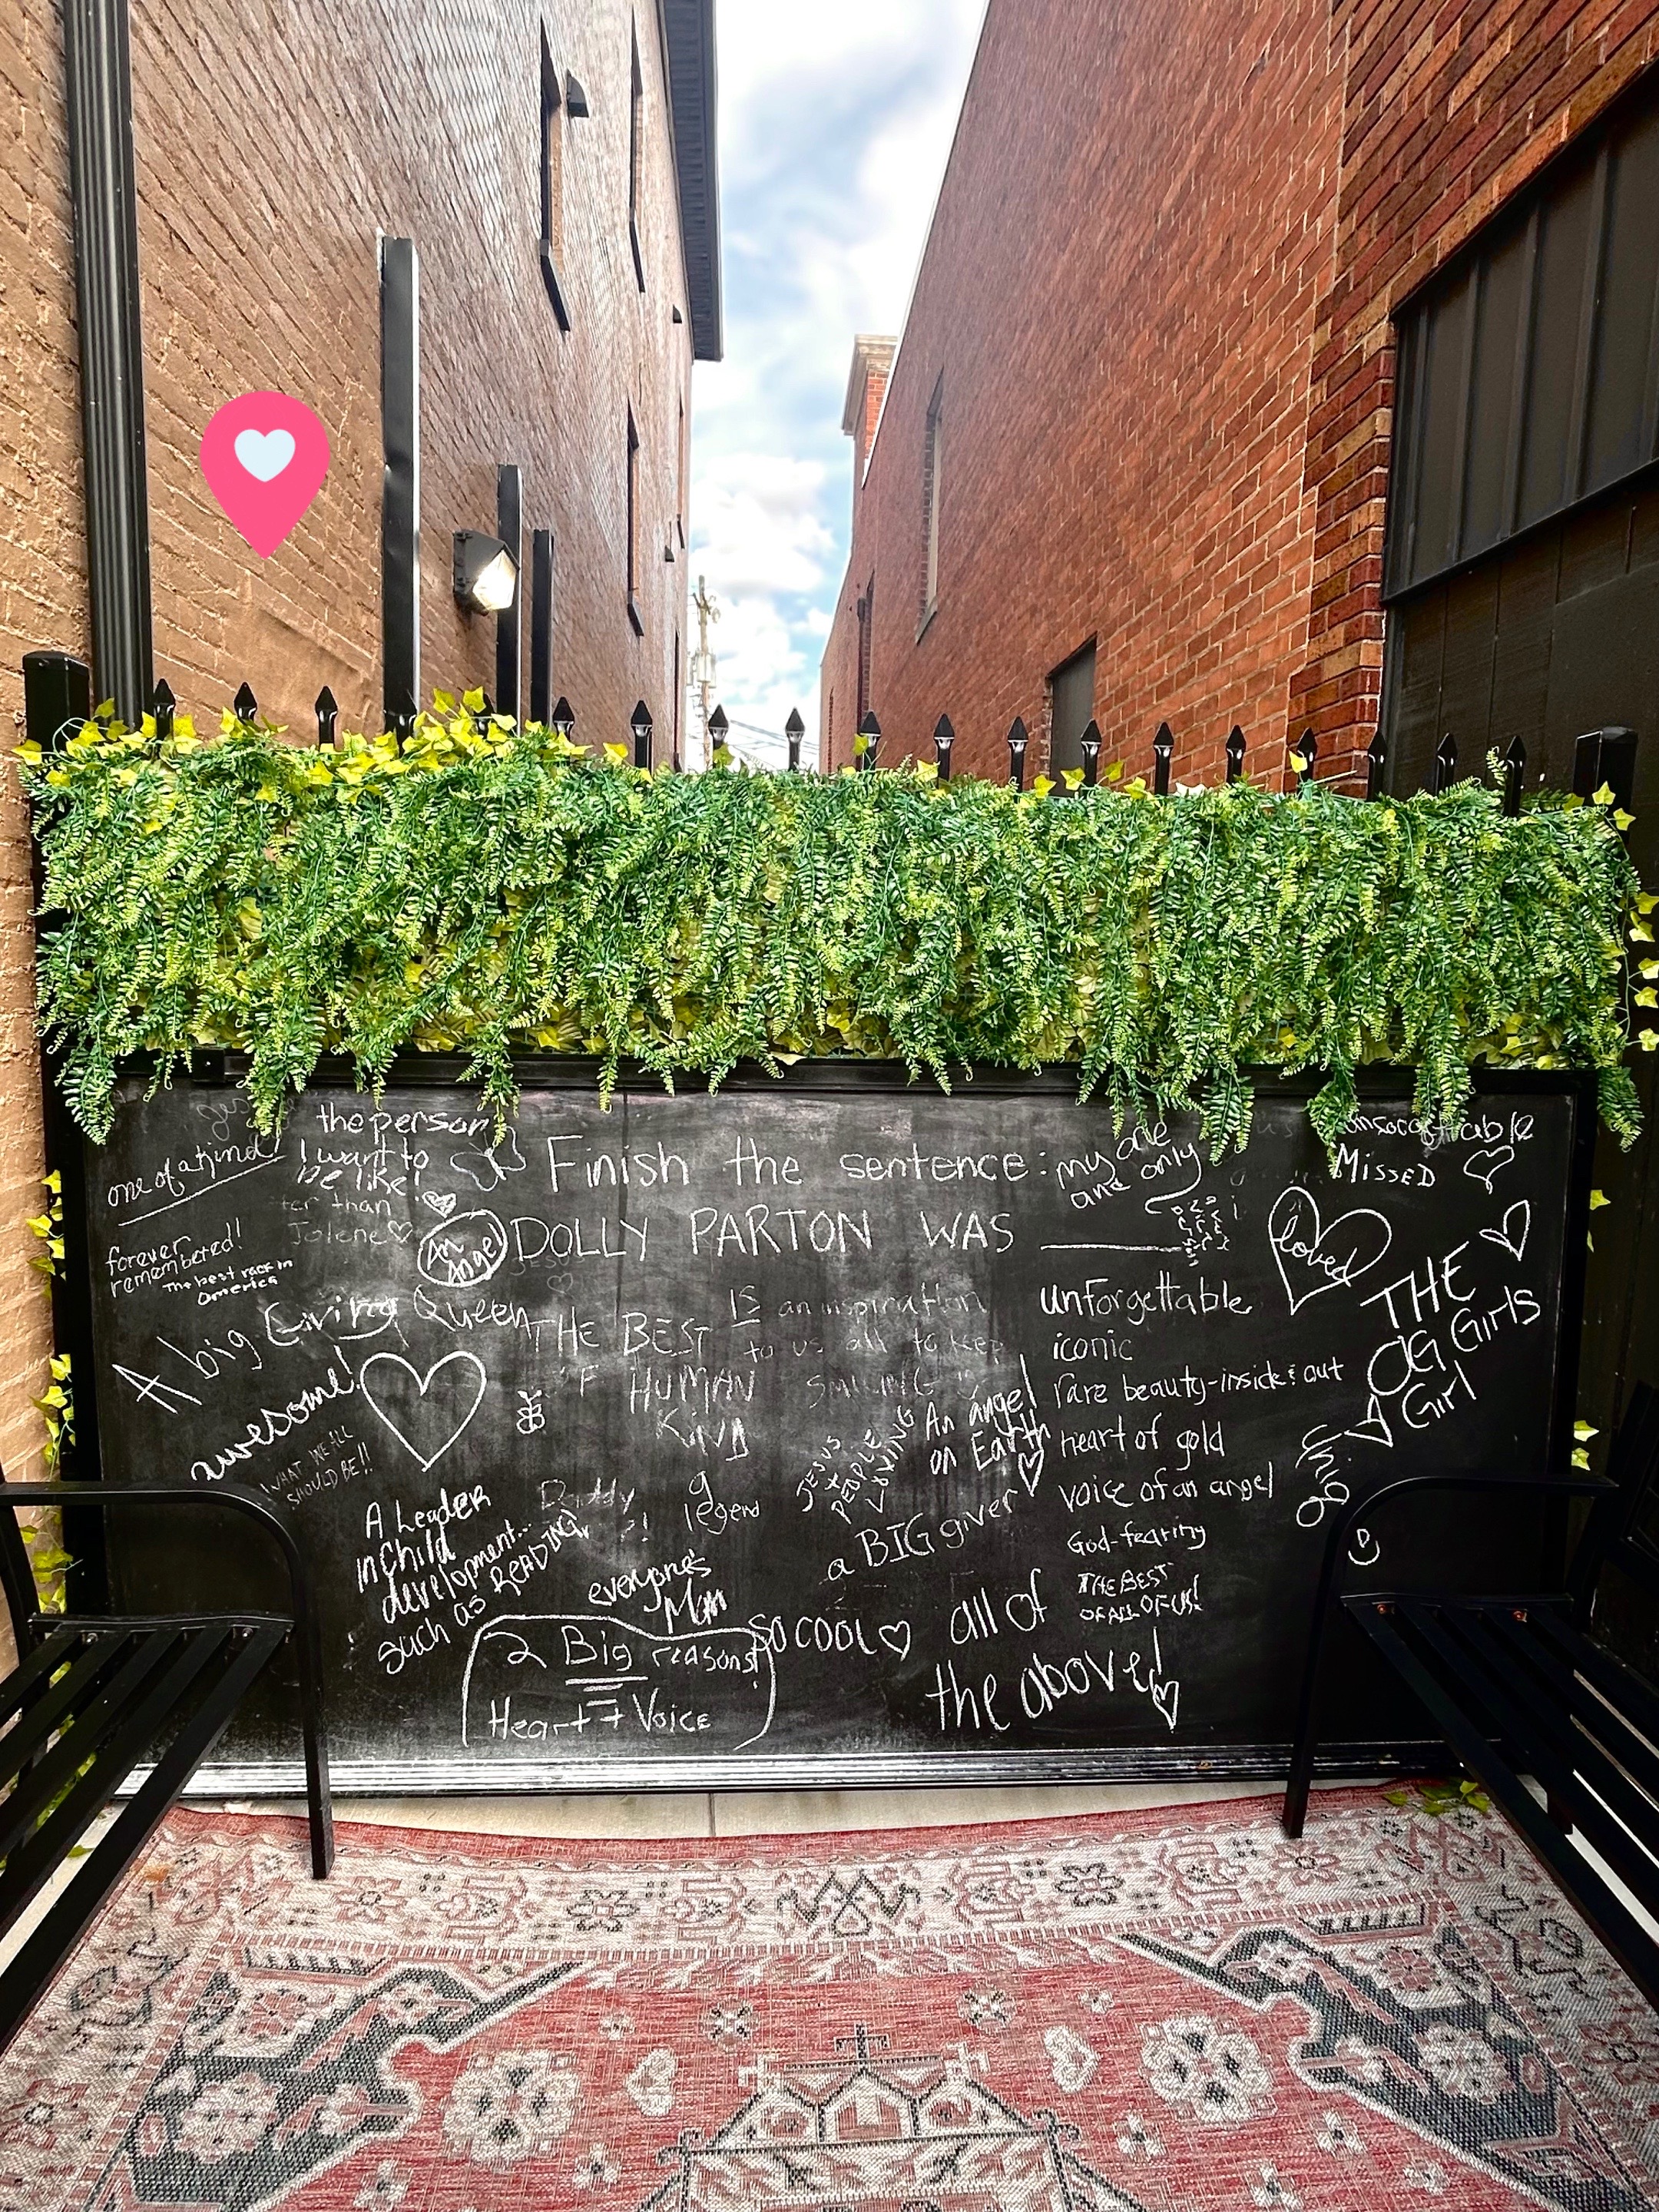 one of a kind!
the person
I want to
be like!
Finish the sentence:
my one
and only
MISSED
ter than
Jolene
An
Angel
DOLLY PARTON WAS
loved
forever
remembered!
The best rack in
America
THE
OG Girls
Girl
A big Giving Queen
THE BEST
OF HUMAN
KIND
IS an inspiration
to us all to keep
SMILING
unforgettable
iconic
rare beauty-inside & out
heart of gold
voice of an angel
God-fearing
THE BEST
OF ALL OF US!
awesome!
WHAT WE ALL
SHOULD BE!!
An angel
on Earth
JESUS
PEOPLE
LOVING
A Leader
in Child
development...
such as READING
Daddy
a
legend
a BIG giver
everyone's
Mom
SO COOL
all of
the above!
2 Big reasons!
Heart + Voice